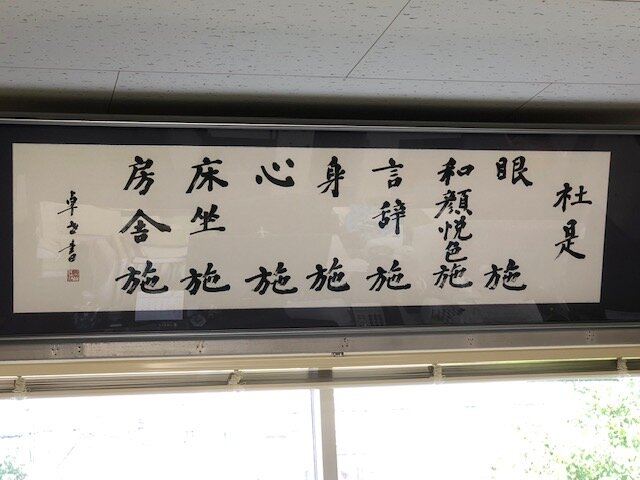 社是
眼施
和顔悦色施
言辞施
身施
心施
床坐施
房舎施